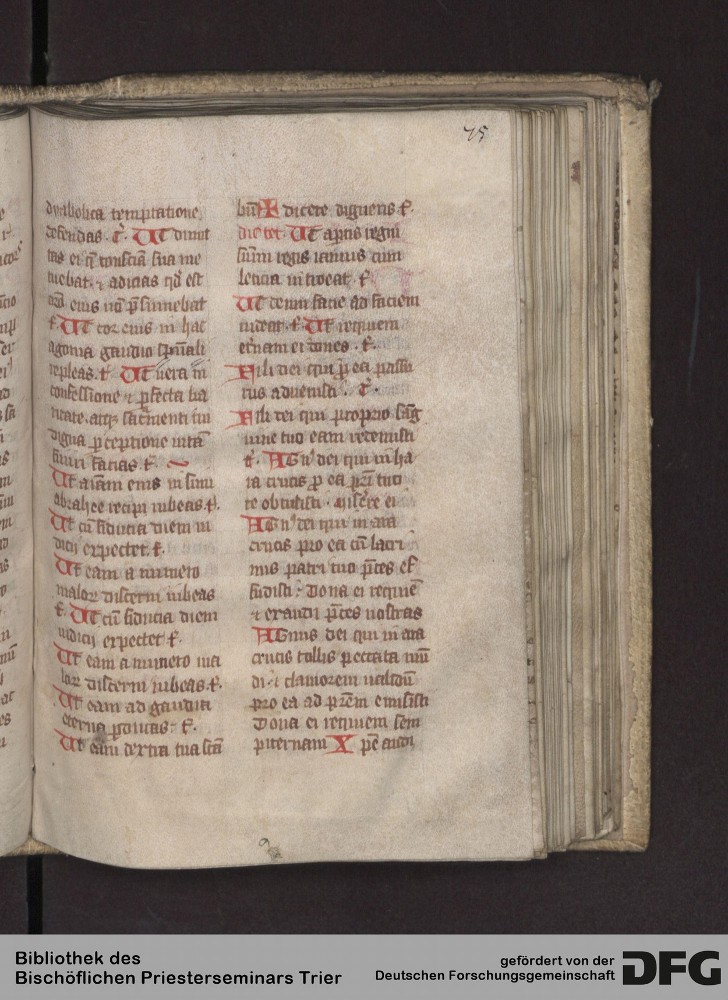 75
dyabolica temptatione
defendas. t. Ut dimot
tas ei q̄ conscīa sua me
tuebat. ⁊ adicias qd est
eius nō p̄sumebat
t. Ut cor eius in hac
agonia gaudio spūali
repleas. t. Ut uera in
confessione ⁊ ꝑfecta ka
ritate. atq; sacr̄menti tui
digna ꝑceptione intā
faciās t.
Ut aīam eius in sinu
abrahee recipi iubeas. t.
Ut cū fiducia diem iu
dicij expectet. t.
Ut eam a numero
malorꝫ discerni iubeas
t. Ut cū fiducia diem
iudicij expectet t.
Ut eam a numero ma
lorꝫ discerni iubeas. t.
Ut eam ad gaudia
eterna ꝑducas. t.
Ut eam dextra tua scā
dicere digneris t.
Ut aꝑtis regni
ianuis cum
leticia introeat. t.
Ut te cum facie ad faciem
uideat. t. Ut requiem
et̄nam ei dones. t.
Fili dei qui ꝑ ea passu
rus aduenisti. t.
Fili dei qui proprio sāg
uine tuo eam redemisti
t. Agn⁹ dei qui in ha
ra crucis ꝑ ea pr̄i tuo
te obtulisti. miserēre ei
Agn⁹ dei qui in ara
crucis pro ea cū lacri
mis patri tuo p̄ces ef
fudisti. Dona ei requiē
⁊ exaudi p̄ces nostras
Agnus dei qui in ara
crucis tollis peccata mū
di. ⁊ clamorem ualidū
pro ea ad pr̄em emisisti
Dona ei requiem sem
piternam X pē audi
Bibliothek des
Bischöflichen Priesterseminars Trier
gefördert von der
Deutschen Forschungsgemeinschaft
DFG